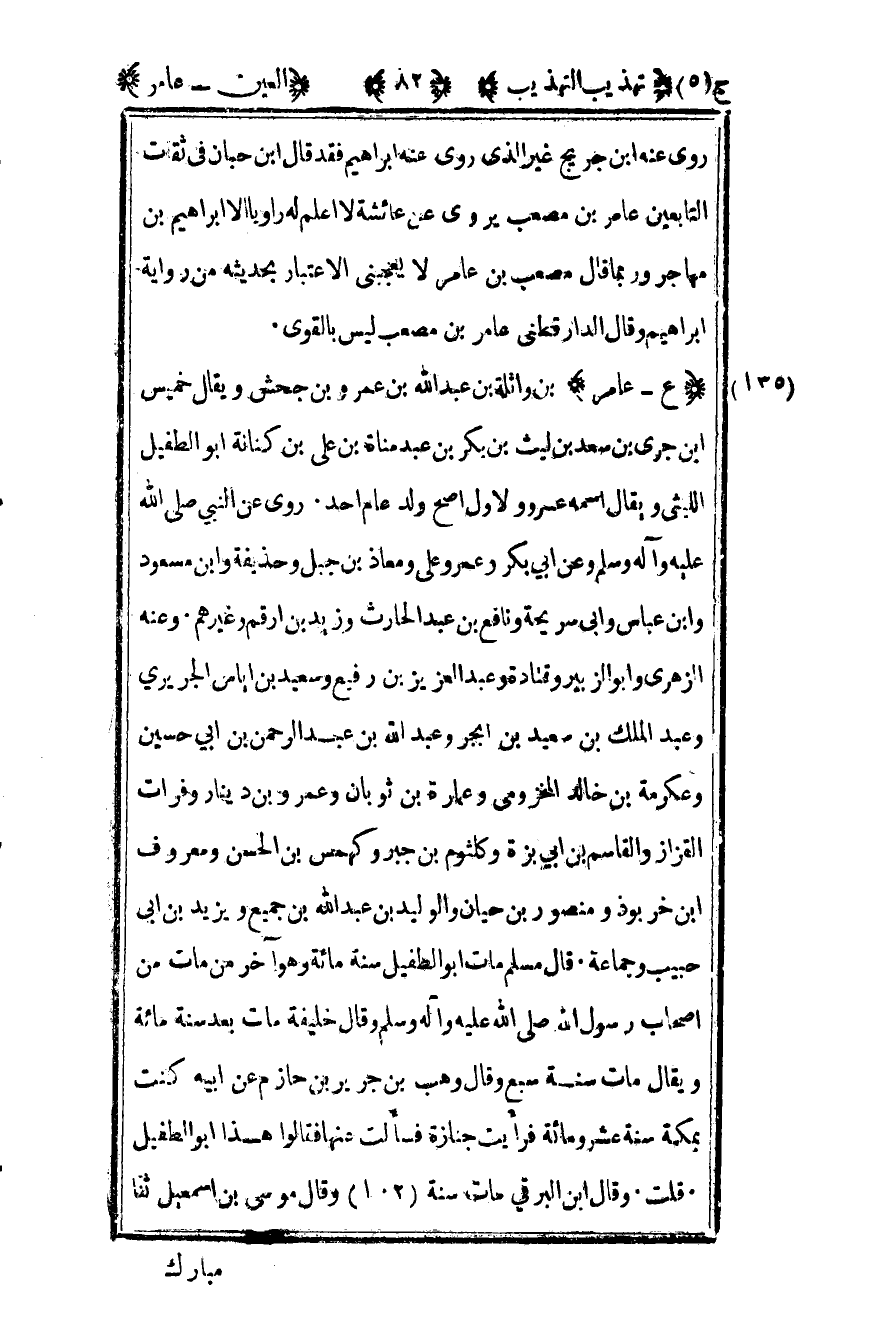 ج(٥) ﴿ تهذيب التهذيب ﴾ ﴿ ٨٢ ﴾ ﴿ العين ــ عامر ﴾
روى عنه ابن جريج غير الذى روى عنه ابراهيم فقد قال ابن حبان فى ثقات
التابعين عامر بن مصعب يروى عن عائشة لا اعلم له راويا الا ابراهيم بن
مهاجر وربما قال مصعب بن عامر لا يعجبنى الاعتبار بحديثه من رواية
ابراهيم وقال الدار قطنى عامر بن مصعب ليس بالقوى ٠
(١٣٥) ﴿ ع ــ عامر ﴾ بن واثلة بن عبد الله بن عمرو بن جحش ويقال خميس
ابن جرى بن سعد بن ليث بن بكر بن عبد مناة بن على بن كنانة ابو الطفيل
الليثى ويقال اسمه عمرو والاول اصح ولد عام احد ٠ روى عن النبي صلى الله
عليه وآله وسلم وعن ابي بكر وعمر وعلى ومعاذ بن جبل وحذيفة وابن مسعود
وابن عباس وابى سريحة ونافع بن عبد الحارث وزيد بن ارقم وغيرهم ٠ وعنه
الزهرى وابو الزبير وقتادة وعبد العزيز بن رفيع وسعيد بن اياس الجريري
وعبد الملك بن سعيد بن ابجر وعبد الله بن عبد الرحمن بن ابي حسين
وعكرمة بن خالد المخزومى وعمارة بن ثوبان وعمرو بن دينار وفرات
القزاز والقاسم بن ابي بزة وكلثوم بن جبر وكهمس بن الحسن ومعروف
ابن خربوذ ومنصور بن حيان والوليد بن عبد الله بن جميع ويزيد بن ابى
حبيب وجماعة ٠ قال مسلم مات ابو الطفيل سنة مائة وهو آخر من مات من
اصحاب رسول الله صلى الله عليه وآله وسلم وقال خليفة مات بعد سنة مائة
ويقال مات سنة سبع وقال وهب بن جرير بن حازم عن ابيه كنت
بمكة سنة عشر ومائة فرأيت جنازة فسألت عنها فقالوا هذا ابو الطفيل
٠ قلت ٠ وقال ابن البرقي مات سنة (١٠٢) وقال موسى بن اسمعيل ثنا
مبارك